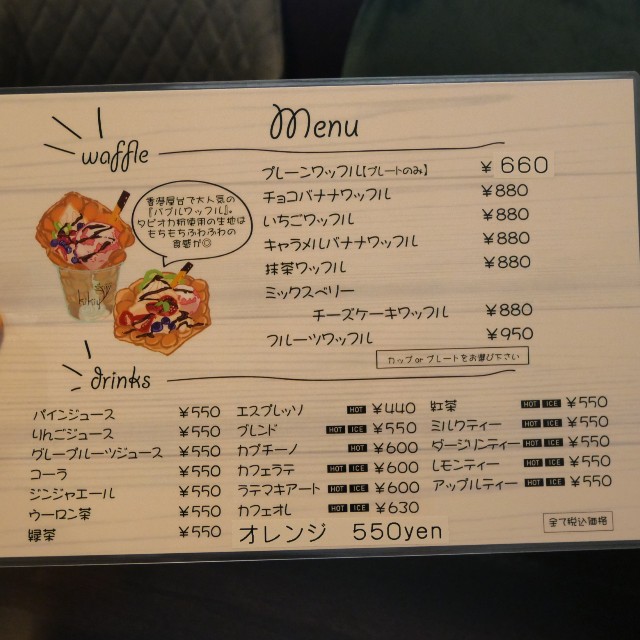 Menu
waffle
香港屋台で大人気の
『バブルワッフル』。
タピオカ粉使用の生地は
もちもちふわふわの
食感が◎
プレーンワッフル【プレートのみ】 ¥ 660
チョコバナナワッフル ¥880
いちごワッフル ¥880
キャラメルバナナワッフル ¥880
抹茶ワッフル ¥880
ミックスベリー
チーズケーキワッフル ¥880
フルーツワッフル ¥950
カップ or プレートをお選び下さい
drinks
パインジュース ¥550
りんごジュース ¥550
グレープルーツジュース ¥550
コーラ ¥550
ジンジャエール ¥550
ウーロン茶 ¥550
緑茶 ¥550
エスプレッソ HOT ¥440
ブレンド HOT ICE ¥550
カプチーノ HOT ¥600
カフェラテ HOT ICE ¥600
ラテマキアート HOT ICE ¥600
カフェオレ HOT ICE ¥630
オレンジ 550yen
紅茶 HOT ICE ¥550
ミルクティー HOT ICE ¥550
ダージリンティー HOT ICE ¥550
レモンティー HOT ICE ¥550
アップルティー HOT ICE ¥550
全て税込価格